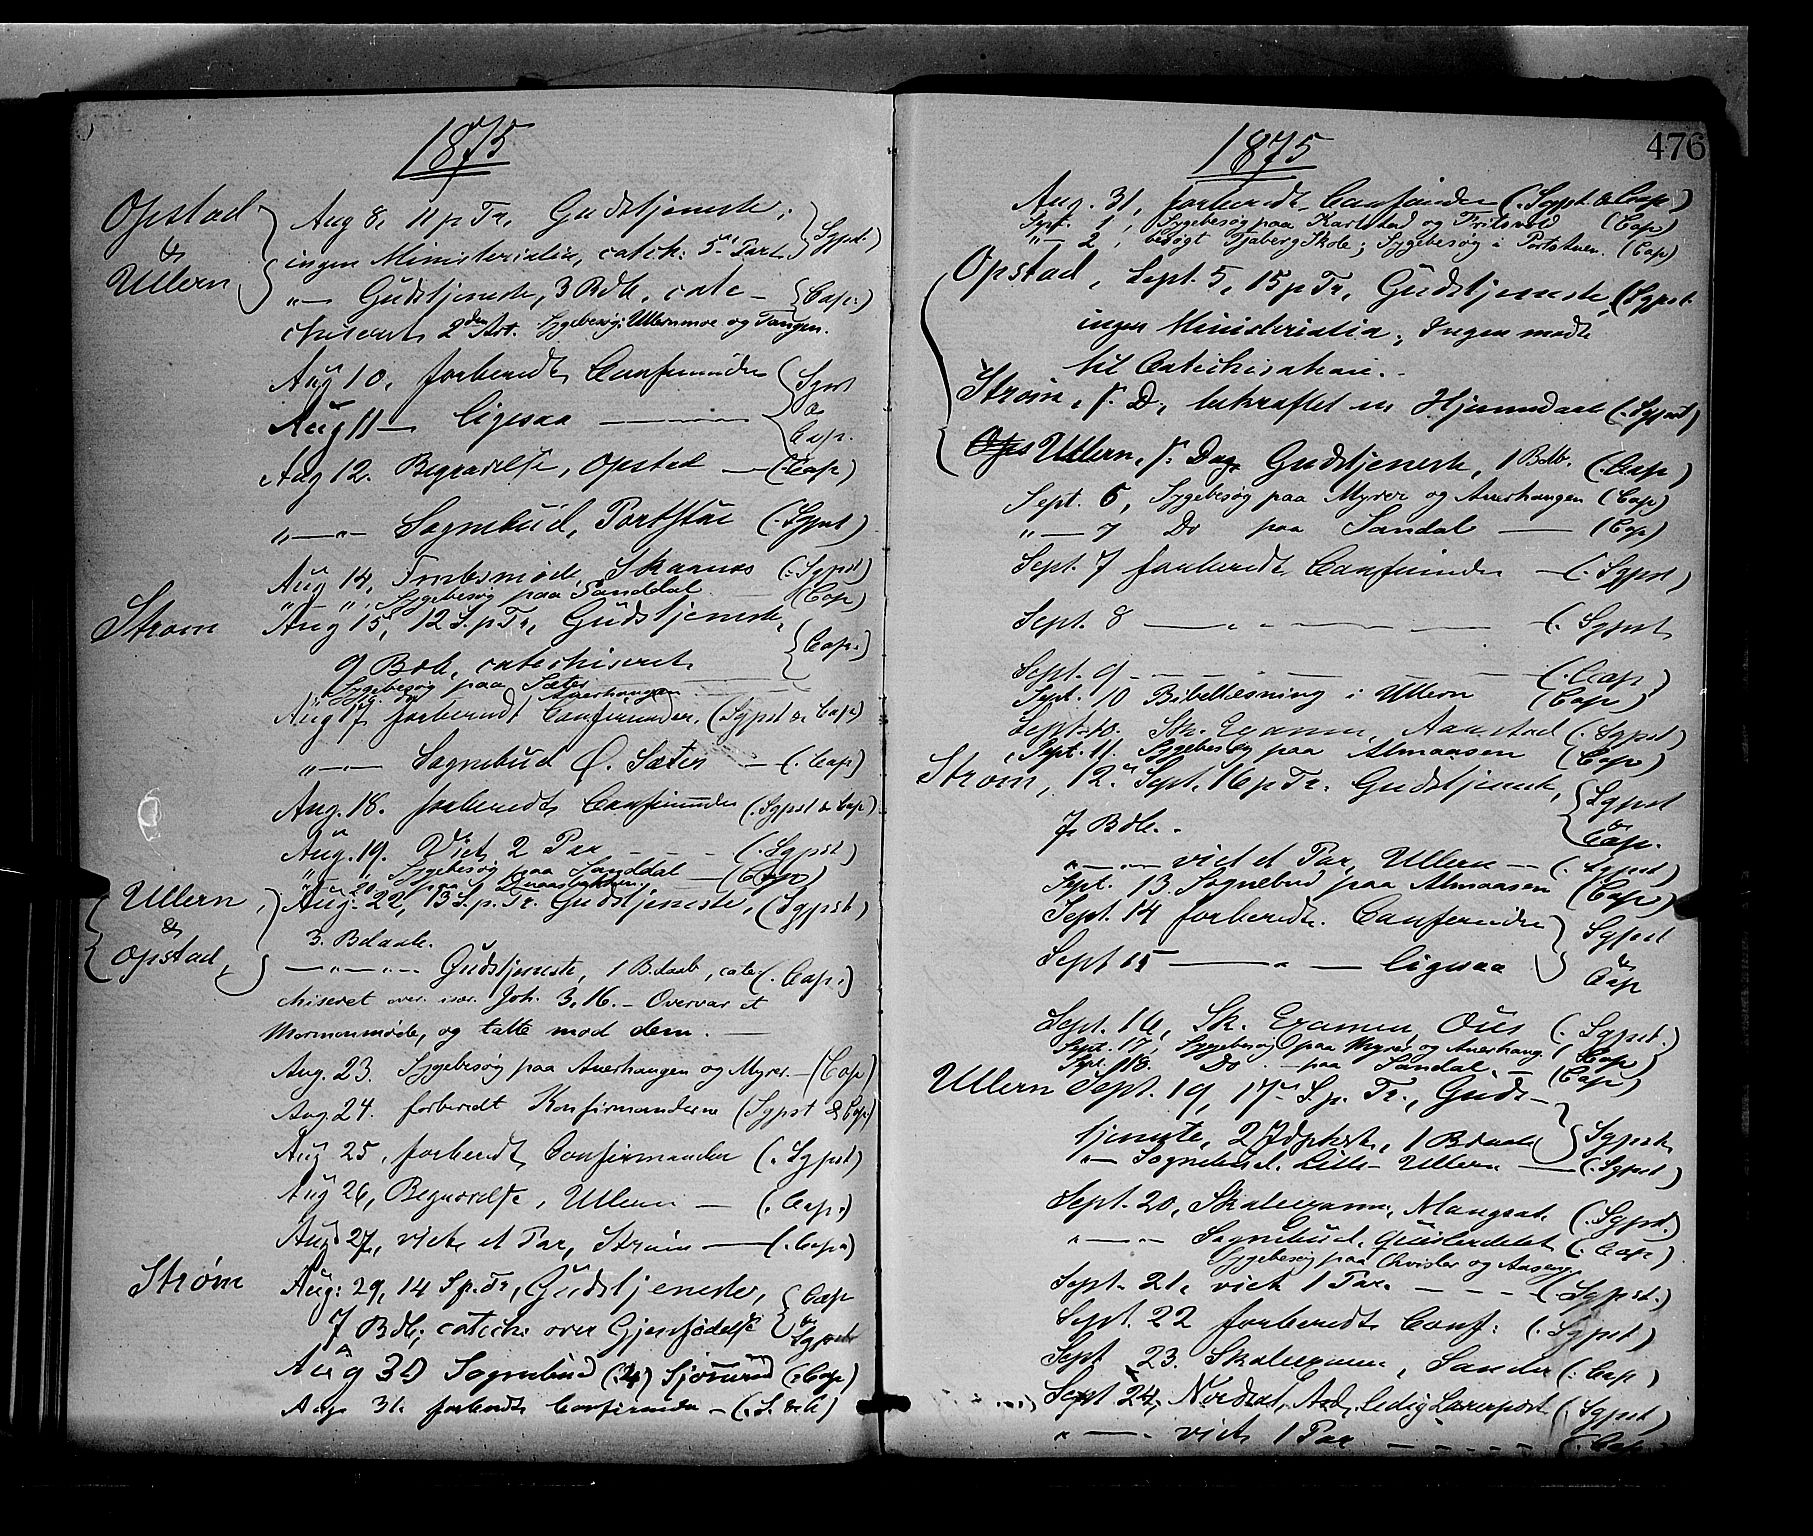 1875
Opstad & Ullern
Aug 8, 11 p Tr, Gudstjeneste; (Sgpst.)
ingen Ministerialia, catech: 5. Part
"— Gudstjeneste, 3 Bdb. cate- (Cap:)
chiseret 2den Art. Sygebesøg: Ullernmoe og Tangen.
Aug 10, forberedt Confirmander (Sgpst
Aug 11 — ligesaa — & Cap.
Aug 12. Begravelse, Opstad — (Cap)
"—"— Sognebud, Portstue (Sgpst)
Aug 14, Skarnes (Sgpst)
"—", Sygebesøg paa Sanddal (Cap)
Strøm
Aug 15, 12 S. p Tr, Gudstjeneste,
9 Bdb, catechiseret (Cap.)
Sygebesøg paa Sæter
Auerhaugen
Aug 17 forberedt Confirmander, (Sgpst & Cap)
"—"— Sognebud Ø. Sæter — (Cap)
Aug. 18. forberedt Confirmander (Sgpst & Cap)
Aug. 19. Viet 2 Par - - - (Sgpst)
"— Sygebesøg paa Sanddal — (Cap)
"— 20 paa
Ullern & Opstad
Aug. 22, 13 S. p. Tr. Gudstjeneste, (Sgpst)
3. Bdaab.
—"—"— Gudstjeneste, 1 Bdaab, cate (Cap.)
chiseret over især Joh. 3,16. — Overvar et
Mormonmøde, og talte mod dem. —
Aug. 23. Sygebesøg paa Auerhaugen og Myrer. — (Cap)
Aug. 24. forberedt Konfirmanderne (Sgpst & Cap)
Aug 25, forberedt Confirmander (Sgpst)
Aug 26, Begravelse, Ullern — (Cap.)
Aug 27, viet et Par, Strøm — (Cap.)
Strøm
Aug: 29, 14 S p. Tr, Gudstjeneste, (Cap
7 Bdb; catech: over Gjenfødelse & Sgpst
Aug 30 Sognebud (4) Sjørud (Cap)
Aug 31. forberedt Confirmander — (S. & C)
1875
476
Aug. 31, forberedt Confirmander (Sgpst & Cap)
Sept. 1, Sygebesøg paa Karlstad og Fritsvold (Cap)
"— 2, besøgt Tjaberg Skole; Sygebesøg i (Cap)
Opstad, Sept. 5, 15 p Tr, Gudstjeneste, (Sgpst.
ingen Ministerialia, Ingen mødte
til Catechisation.
Strøm, s. D, bekræftet en Hjemmedaab (Sgpst)
Ops Ullern, s. Dag Gudstjeneste, 1 Bdb. (Cap)
Sept. 6, Sygebesøg paa Myrer og Auerhaugen (Cap)
"— 7 Do paa Sandal — (Cap)
Sept. 7 forberedt Confirmander — (Sgpst)
Sept. 8 — " — (Sgpst
Sept. 9 — (Cap)
Sept. 10 Bibellæsning i Ullern (Cap)
Sept. 10. Sk. Examen, Aarstad (Sgpst)
Sept. 11. Sygebesøg paa Almaasen (Cap)
Strøm, 12. Sept. 16 p Tr. Gudstjeneste, (Sgpst
7 Bdb. & Cap.
"—"— viet et Par, Ullern — (Sgpst)
Sept. 13. Sognebud paa Almaasen (Cap)
Sept. 14 forberedt Confirmander (Sgpst
Sept 15 — " — ligesaa & Cap
Sept. 16, Sk. Examen, Ous (Sgpst.)
Sept. 17, Sygebesøg paa Myrer og Auerhaug. (Cap)
Sept. 18. Do — paa Sandal. — (Cap)
Ullern Sept. 19, 17 S. p. Tr., Guds-
tjeneste, 1 Bdaab (Sgpst
"— Sognebud, Lille-Ullern — (Sgpst)
Sept. 20, Skoleexamen, Mangset (Sgpst.)
"—"— Sognebud, (Cap)
Sygebesøg paa Qvisler og Aaseng
Sept. 21, viet 1 Par. - - - - (Sgpst.)
Sept. 22 forberedt Conf: (Sgpst)
Sept 23. Skoleexamen, Sander (Cap)
Sept 24, Nordrod, ledig Lærerpost (Sgpst)
"—"— viet 1 Par - - - - (Cap